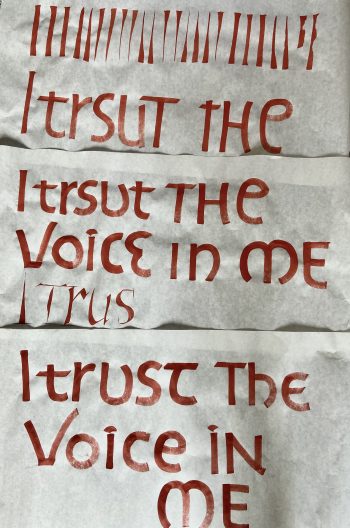 ItrsuT tHe
Itrsut THe
Voice in mE
ITrus
Itrust The
Voice iN
mE